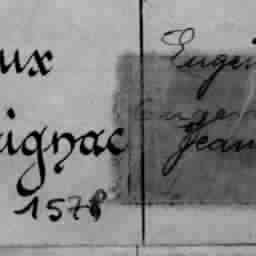 ux
ignac
1578
Eugen
Eugen
Jean